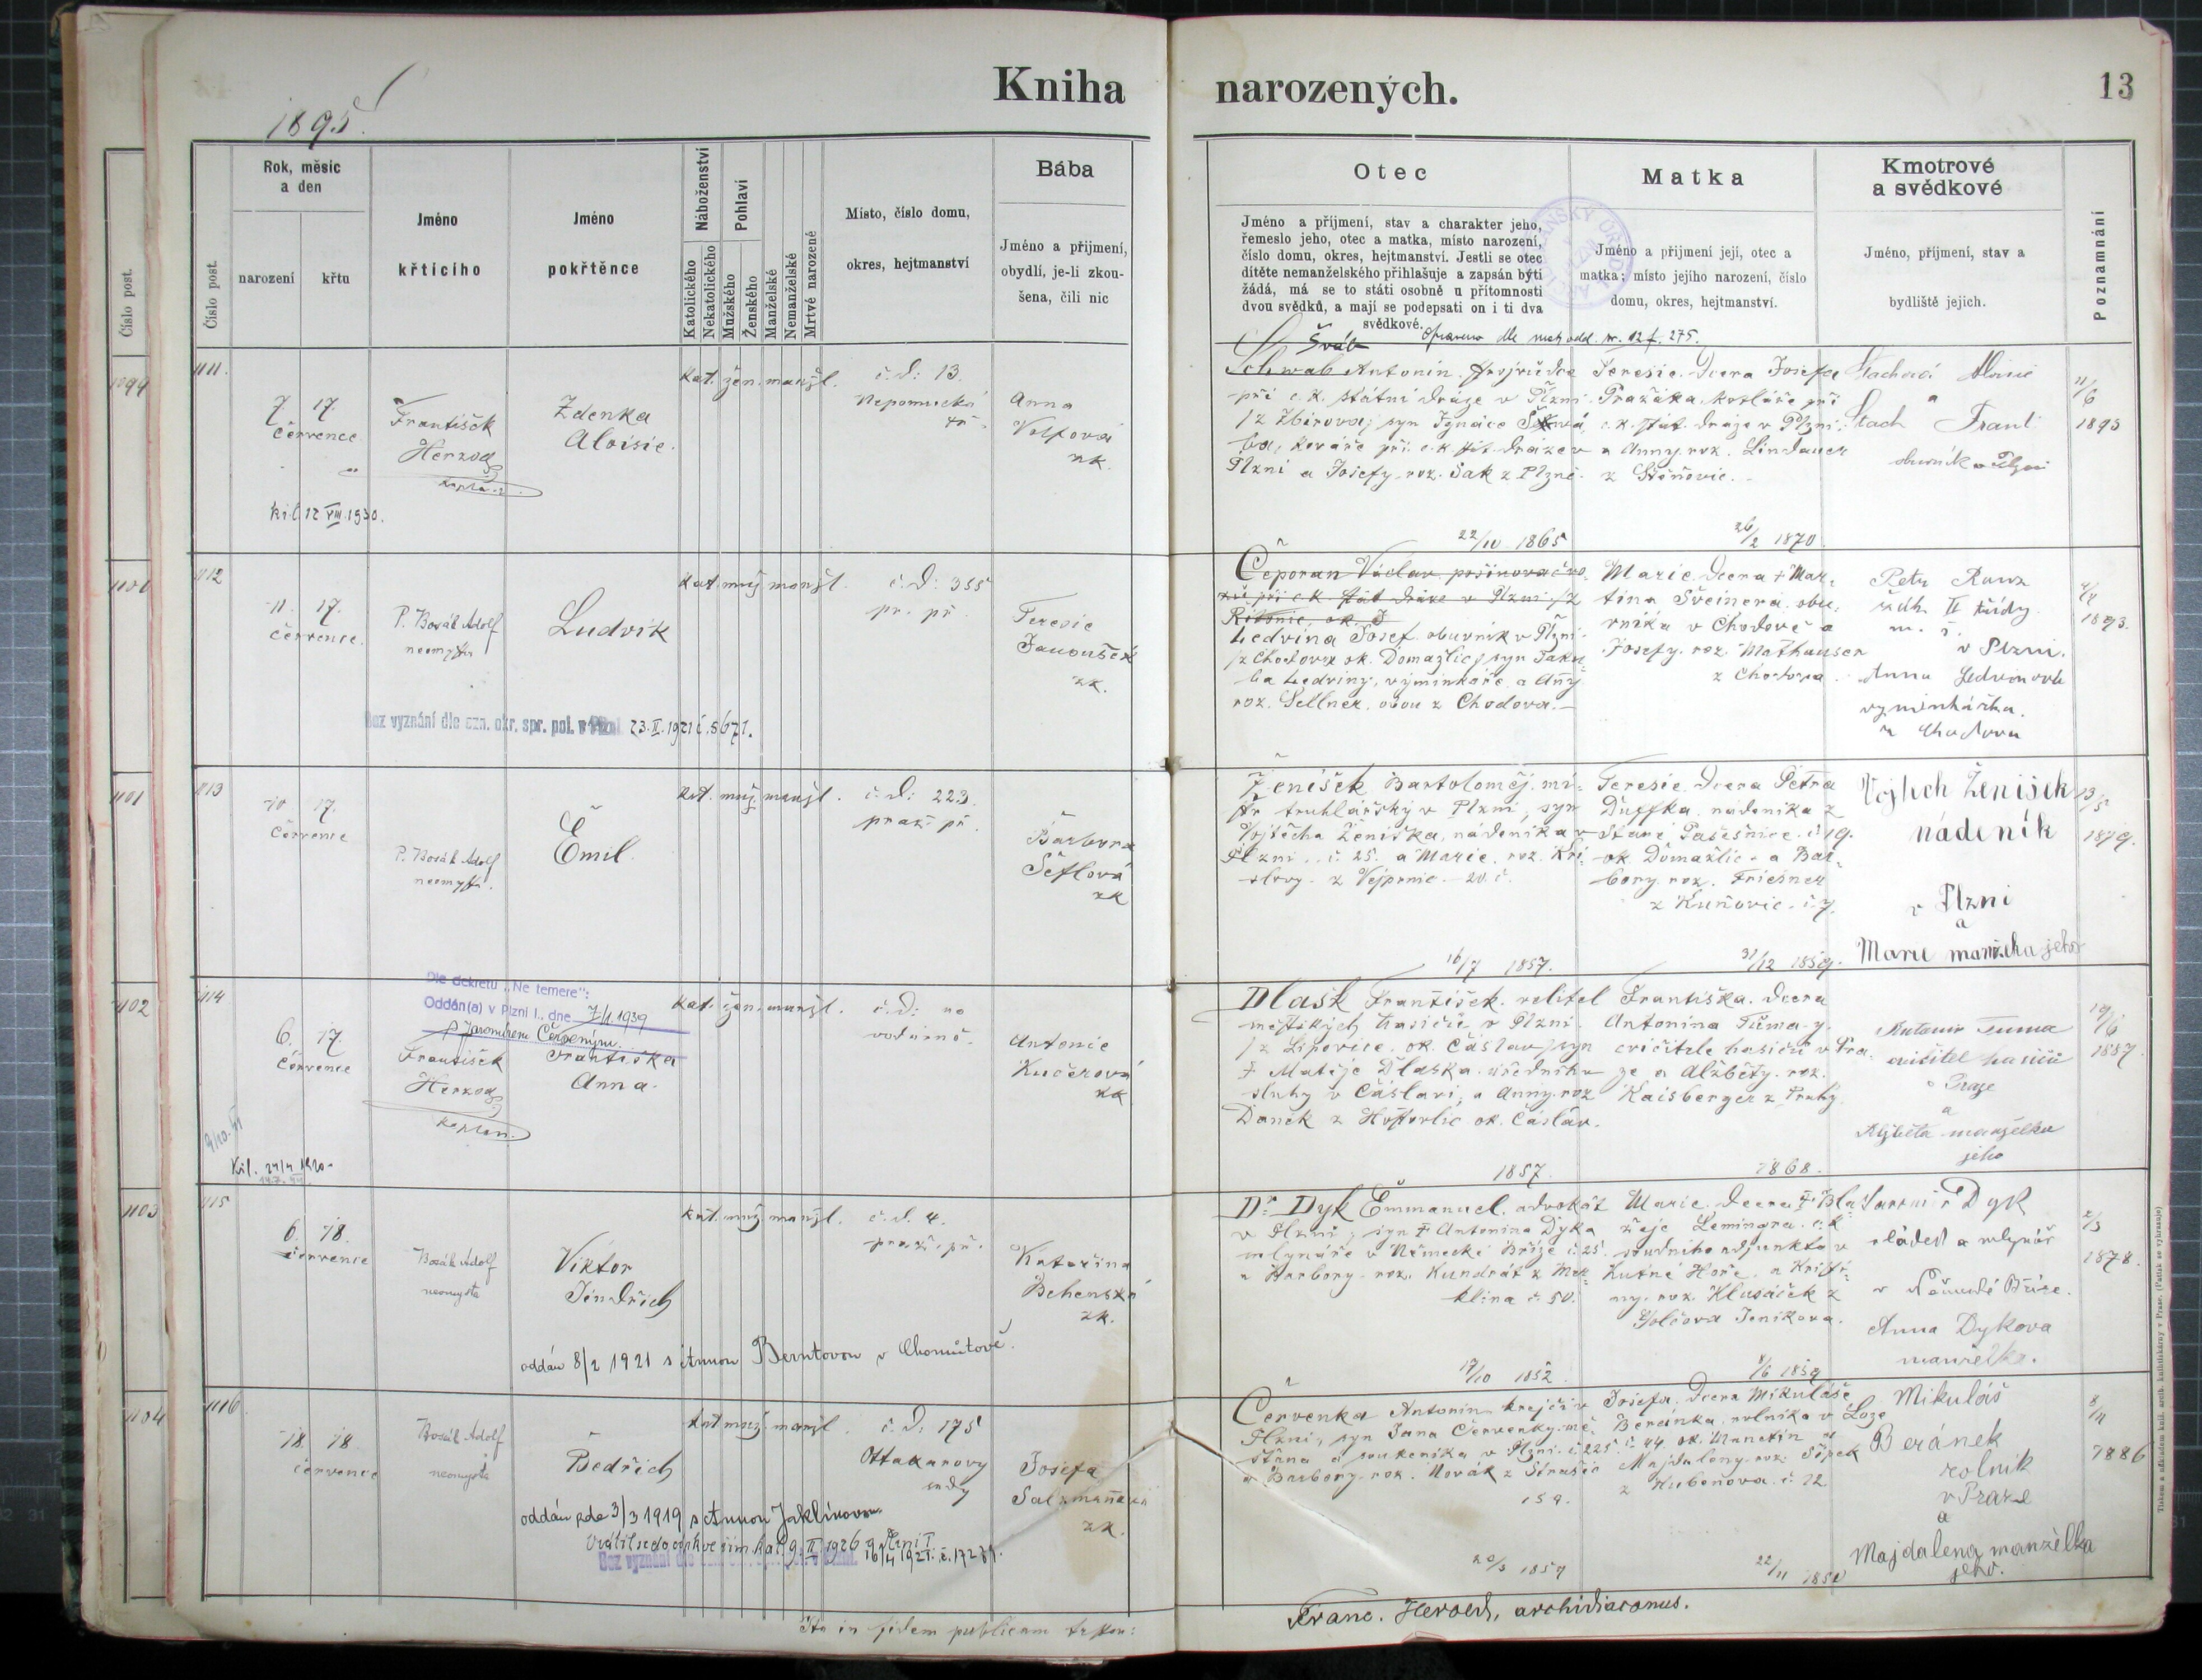 Kniha narozených.
13
1895
Číslo post.
1099
1100
1101
1102
1103
1104
Číslo post.
Rok, měsíc
a den
narození
křtu
Jméno
křtícího
Jméno
pokřtěnce
Náboženství
Katolického
Nekatolického
Pohlaví
Mužského
Ženského
Manželské
Nemanželské
Mrtvé narozené
Místo, číslo domu,
okres, hejtmanství
Bába
Jméno a příjmení,
obydlí, je-li zkou-
šena, čili nic
Otec
Jméno a příjmení, stav a charakter jeho,
řemeslo jeho, otec a matka, místo narození,
číslo domu, okres, hejtmanství. Jestli se otec
dítěte nemanželského přihlašuje a zapsán býti
žádá, má se to státi osobně u přítomnosti
dvou svědků, a mají se podepsati on i ti dva
svědkové.
Matka
Jméno a přijmení její, otec a
matka; místo jejího narození, číslo
domu, okres, hejtmanství.
Kmotrové
a svědkové
Jméno, příjmení, stav a
bydliště jejich.
Poznamnání
1111.
7. 17.
července
František
Herzog
kaplan
Zdenka
Aloisie.
kat. žen. manžl.
č. d: 13.
Nepomucká
tř.
Anna
Volfová
zk.
biř. 12 VIII. 1930.
Šváb
Opraveno dle mat. odd.
Schwab Antonín
při c. k. státní dráze v Plzni
/z Zbirova/ syn Ignáce
Plzni a Josefy roz. Šak z Plzně.
22/10 1865
Teresie. Dcera Josefa
Pražáka, kotláře při
c. k. stát. dráze v Plzni,
a Anny roz. Lindauer
z Štěnovic.
26/2 1870
Stachová Aloisie
a
Stach Frant
obuvník v Plzni
11/6
1893
1112
11. 17.
července.
P. Bosák Adolf
neomysta
Ludvík
kat. muž. manžl.
č. d: 355
pr. př.
Teresie
Janoušek
zk.
Bez vyznání dle ozn. okr. spr. pol. v Plzni 23. II. 1921 č. 5671.
Čeporan Václav
při c. k. stát dráze v Plzni /z
Ledvina Josef. obuvník v Plzni
/z Chodova ok. Domažlic/ syn Jaku-
ba Ledviny, výminkáře a Anny
roz. Sellner, obou z Chodova.
Marie. Dcera † Mar-
tina Šveinera, obu-
vníka v Chodově a
Josefy. roz. Mathauser
z Chodova.
Petr
II třídy
v Plzni.
Anna Ledvinová
výminkářka
z Chodova
1893.
1113
10 17.
července
P. Bosák Adolf
neomyst.
Emil.
kat. muž. manžl.
č. d: 223.
praž. př.
Barbora
Šeflová
zk
Ženíšek Bartoloměj. mi-
str truhlářský v Plzni, syn
Vojtěcha Ženíška, nádeníka v
Plzni. č. 25. a Marie. roz. Kři-
stovy z Vejprnic. 20. č.
16/7 1857.
Teresie. Dcera Petra
Duffka. nádeníka z
Staré Pasečnice. č 19.
ok Domažlic. a Bar-
bory. roz. Friesner
z Kuňovic. č. 7.
31/12 1859.
Vojtěch Ženíšek
nádeník
v Plzni
a
Marie manželka jeho
13/5
1879.
1114
Dle dekretu „Ne temere“:
Oddán(a) v Plzni I., dne 7/1. 1939
s Jaromírem Červeným.
6. 17.
července
František
Herzog
kaplan.
Františka
Anna.
kat. žen. manžl.
č. d: no
vodárně.
Antonie
Kučerová
zk
Dlask František. velitel
městských hasičů v Plzni.
/z Lipovice, ok. Čáslav/ syn
† Matěje Dlaska. úředního
sluhy v Čáslavi, a Anny. roz
Daněk z Hostovlic ok. Čáslav.
1857.
Františka. Dcera
Antonína Tůmy
cvičitele hasičů v Pra-
ze a Alžběty. roz.
Kaisberger z Prahy.
1868.
Antonín Tuma
cvičitel hasičů
v Praze
a
Alžběta manželka
jeho
19/6
1887
1115
6. 18.
července
Bosák Adolf
neomysta
Viktor
Jindřich
kat. muž. manžl.
č. d. 4.
praž. př.
Kateřina
Behenská
zk.
oddán 8/2 1921 s Annou Berntovou v Chomutově.
Dr. Dyk Emmanuel. advokát
v Plzni, syn † Antonína Dyka
mlynáře v Německé Bříze č. 25.
a Barbory. roz. Kundrát z Mer-
klína č. 50.
17/10 1852
Marie. Dcera † Bla-
žeje Lemingra. c. k.
soudního adjunkta v
Kutné Hoře, a Kristi-
ny. roz. Klusáček z
Golčova Jeníkova.
8/6 1859
Dyk
sládek a mlynář
v Německé Bříze.
Anna Dyková
manželka.
2/3
1878.
1116.
18 18
července
Bosák Adolf
neomysta
Bedřich
kat muž. manžl
č. d: 175
Ottakarovy
sady
Josefa
Salzmanová
zk.
oddán zde 3/3 1919 s Annou Jaklínovou
Vrátil se do církve řím. kat. 9. II. 1926 Plzni I.
Bez vyznání dle 16/4 1921. č. 17281.
Červenka Antonín krejčí v
Plzni, syn Jana Červenky. mě-
šťana a soukeníka v Plzni. č. 225
a Barbory. roz. Novák z Strašic
159.
20/3 1857
Josefa. Dcera Mikuláše
Beránka. rolníka v Loze
č. 44. ok. Manetín a
Majdaleny. roz. Šípek
z Hubenova. č. 22.
22/11 1850
Mikuláš
Beránek
rolník
v Praze
a
Majdalena manželka
jeho.
8/11
1886
Ita in fidem publicam testor:
Franc. Herold, archidiaconus.